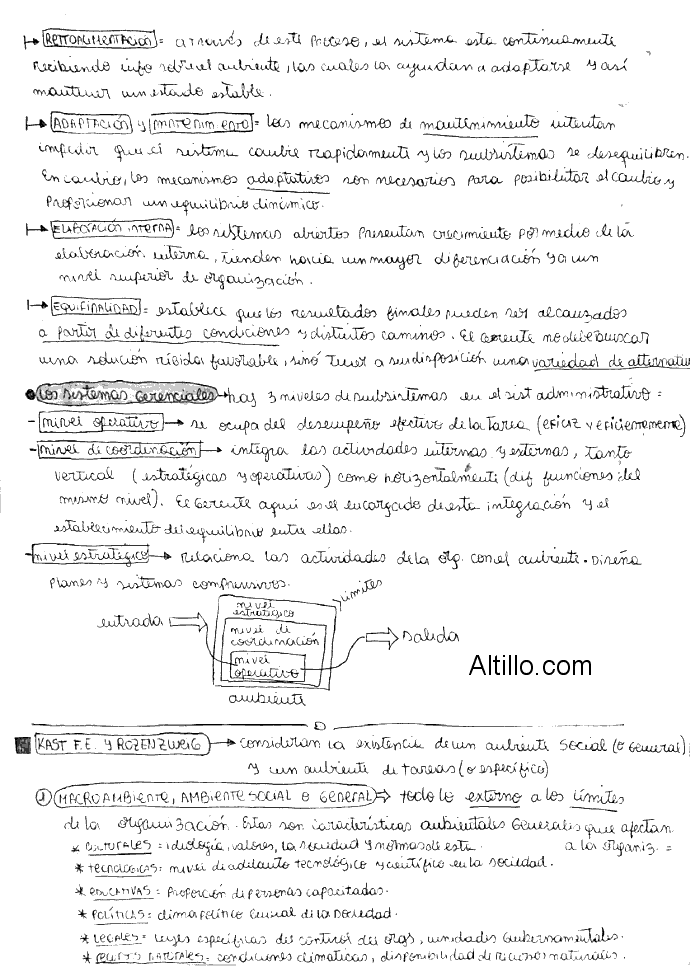 RETROALIMENTACIÓN = a través de este proceso, el sistema esta continuamente
recibiendo info sobre el ambiente, las cuales la ayudan a adaptarse y así
mantener un estado estable.
ADAPTACIÓN y MANTENIMIENTO = los mecanismos de mantenimiento intentan
impedir que el sistema cambie rapidamente y los subsistemas se desequilibren.
En cambio, los mecanismos adaptativos son necesarios para posibilitar el cambio y
proporcionar un equilibrio dinámico.
ELABORACIÓN INTERNA = los sistemas abiertos presentan crecimiento por medio de la
elaboración interna, tienden hacia un mayor diferenciación y a un
nivel superior de organización.
EQUIFINALIDAD = establece que los resultados finales pueden ser alcanzados
a partir de diferentes condiciones y distintos caminos. El gerente no debe buscar
una solución rígida favorable, sinó tener a su disposición una variedad de alternativ
Los sistemas Gerenciales → hay 3 niveles de subsistemas en el sist administrativo =
- nivel operativo → se ocupa del desempeño efectivo de la tarea (eficaz y eficientemente)
- nivel de coordinación → integra las actividades internas y externas, tanto
vertical (estratégicas y operativas) como horizontalmente (dif funciones del
mismo nivel). El Gerente aqui es el encargado de esta integración y el
establecimiento del equilibrio entre ellas.
- nivel estratégico → relaciona las actividades de la org. con el ambiente. Diseña
planes y sistemas comprensivos.
límites
nivel estratégico
entrada
nivel de coordinación
salida
nivel operativo
Altillo.com
ambiente
KAST F.E. Y ROZENZWEIG → consideran la existencia de un ambiente social (o General)
y un ambiente de tareas (o específico)
1 MACROAMBIENTE, AMBIENTE SOCIAL O GENERAL ⇒ todo lo externo a los límites
de la organización. Estas son características ambientales Generales que afectan
a la organiz. =
* CULTURALES = ideología, valores, la sociedad y normas de esta.
* TECNOLÓGICAS = nivel de adelanto tecnológico y científico en la sociedad.
* EDUCATIVAS = proporción de personas capacitadas.
* POLÍTICAS = clima político General de la sociedad.
* LEGALES = leyes específicas del control del orgs, unidades Gubernamentales.
* RECURSOS NATURALES = condiciones climaticas, disponibilidad de recursos naturales.